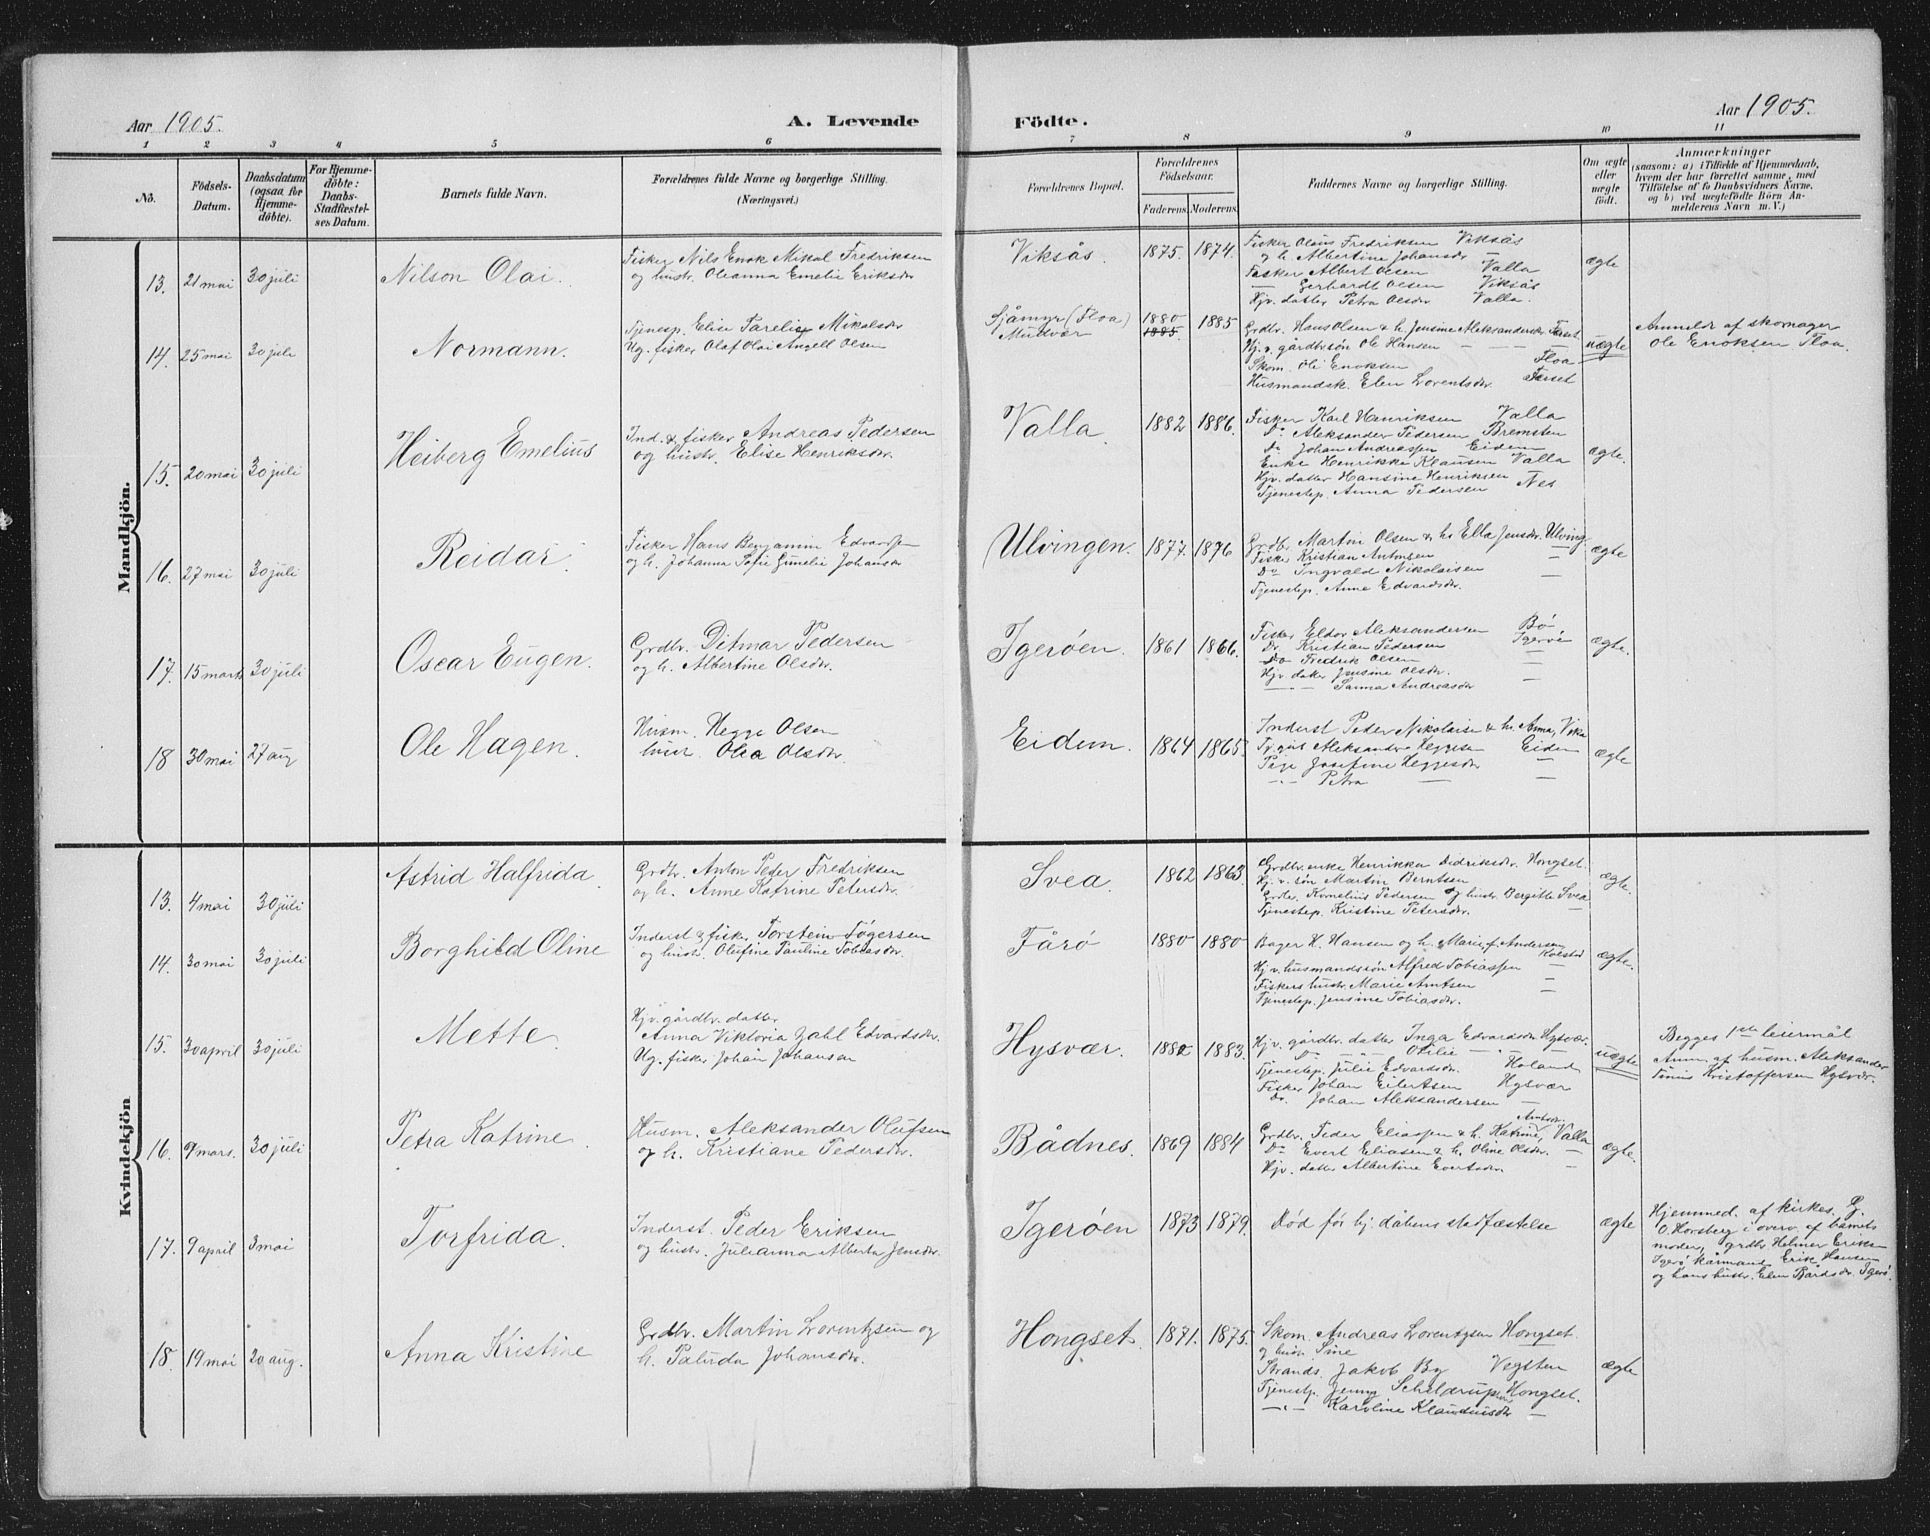 Aar 1905.
A. Levende
Födte.
Aar 1905.
1 2 3 4 5 6 7 8 9 10 11
No.
Födsels-
Datum.
Daabsdatum
(ogsaa for
Hjemme-
döbte).
For Hjemme-
döbte:
Daabs-
Stadfæstel-
ses Datum.
Barnets fulde Navn.
Forældrenes fulde Navne og borgerlige Stilling.
(Næringsvei.)
Forældrenes Bopæl.
Forældrenes
Födselsaar.
Faderens. Moderens.
Faddernes Navne og borgerlige Stilling.
Om ægte
eller
uægte
födt.
Anmærkninger
(saasom: a) i Tilfælde af Hjemmedaab,
hvem der har forrettet samme, med
Tilföielse af to Daabsvidners Navne,
og b) ved uægtefödte Börn An-
melderens Navn m. V.)
Mandkjön.
13. 21 mai 30 juli Nilson Olai.
Fisker Nils Enok Mikal Fredriksen
og hustr. Oleanna Emelie Eriksdr
Viksås 1875. 1874.
Fisker Olaus Fredriksen Viksås
og h. Albertine Johansdr —
Fisker Albert Olsen Valla
— Gerhardt Olsen Viksås
Hjv. datter Petra Olsdr Valla.
ægte
14. 25 mai 30 juli Normann.
Tjenesp. Elise Parelie Mikalsdr
Ug. fisker Olaf Olai Angell Olsen
Sjåmyr (Floa)
Mudvær
1880
1885. 1885
Grdbr. Hans Olsen & h. Jensine Aleksandersdr Forset
Hj. v. gårdbrsön Ole Hansen — — —
Skom. Ole Enoksen Floa
Husmandsk. Elen Lorentsdr. Forset
uægte
Anmeldt af skomager
Ole Enoksen Floa.
15. 20 mai 30 juli Heiberg Emelius
Ind. & fisker Andreas Pedersen
og hustr. Elise Henriksdr.
Valla. 1882 1886.
Fisker Karl Henriksen Valla
Do Aleksander Pedersen Bremsten
Do Johan Andreassen Eidem
Enke Henrikke Klausen Valla
Hjv. datter Hansine Henriksen
Tjenestep. Anna Pedersen Nes
ægte.
16. 27 mai 30 juli Reidar.
Fisker Hans Benjamin Edvardsen
og h. Johanna Sofie Gunelie Johansdr
Ulvingen. 1877. 1876
Grdb. Martin Olsen & h. Ella Jensdr. Ulving.
Fisker Kristian Antonsen —
Do Ingvald Nikolaisen
Tjenestep. Anne Edvardsdr. —
ægte
17. 15 marts 30 juli Oscar Eugen.
Grdbr. Ditmar Pedersen
og h. Albertine Olsdr.
Igerøen. 1861 1866.
Fisker Eldor Aleksandersen Bö
Do. Kristian Pedersen Igerön
Do Fredrik Olsen —
Hjv. datter Jensine Olsdr. —
— " — Sanna Andreasdr
ægte.
18 30 mai 27 aug Ole Hagen.
Husm. Hegge Olsen
hustr. Olea Olsdr.
Eidem. 1864 1865.
Inderst Peder Nikolaisen & h. Anna, Vika
Tj. gut Aleksander Heggesen Eidem
Pige Josefine Heggesdr —
— " — Petra — —
ægte
Kvindekjön
13. 4 mai 30 juli Astrid Halfrida.
Grdbr. Anton Peder Fredriksen
og h. Anne Katrine Petersdr.
Svea. 1862 1863.
Grdbr. enke Henrikka Didriksdr. Hongset
Hj. v. sön Martin Berntsen —
Grdbr. Kornelius Pedersen og hustr. Bergitte Svea
Tjenestep. Kristine Petersdr. —
ægte.
14. 30 mai 30 juli Borghild Oline
Inderst & fisk. Torstein Tögersen
og hustr. Olufine Pauline Tobiasdr.
Fårö 1880 1880
Bager H. Hansen og h. Marie f. Andersen
Kolstad
Hj. v. husmandssön Alfred Tobiassen —
Fiskers hustr. Marie Arntsen —
Tjenestep. Jensine Tobiasdr.
ægte.
15. 30 april 30 juli Mette.
Hjv. gårdbr. datter
Anna Viktoria Zahl Edvardsdr.
Ug. fisker Johan Johansen
Hysvær. 1882 1883.
Hjv. gårdbr. datter Inga Edvardsdr Hysvær.
Do — " — Otilie — " — —
Tjenestep. Julie Edvardsdr. Holand
Fisker Johan Eilertsen Hysvær
Do. Johan Aleksandersen —
uægte
Begges 1ste leiermål
Anm. af husm. Aleksander
Tinius Kristoffersen Hysvær.
16. 9 mars. 30 juli Petra Katrine.
Husm. Aleksander Olufsen
og h. Kristiane Pedersdr.
Bådnes. 1869 1884
Grdbr. Peder Eliassen & h. Katrine Arntsdr, Valla
Do Evert Eliasen & h. Oline Olsdr. —
Hjv. datter Albertine Evertsdr.
ægte.
17. 9 april 3 mai Torfrida.
Inderst. Peder Eriksen
og hustr. Julianna Alberta Jensdr.
Igerøen 1873 1879.
Död før hj. dåbens stadfæstelse
ægte
Hjemmed. af kirkes. P.
O. Horsberg i overv. af barnets
moder, grdbr Helmer Eriks-
Igerö kårmand Erik Hansen
og hans hustr. Elen Bårdsdr. Igerö.
18. 19 mai 20 aug. Anna Kristine
Grdbr. Martin Lorentzsen og
h. Paluda Johansdr.
Hongset 1871. 1875.
Skom. Andreas Lorentzsen Hongset.
og hustr. Sine
Strands. Jakob By Vegsten
Tjenestp. Jenny Schelderupsen Hongset.
— " — Karoline Klaudiusdr —
ægte